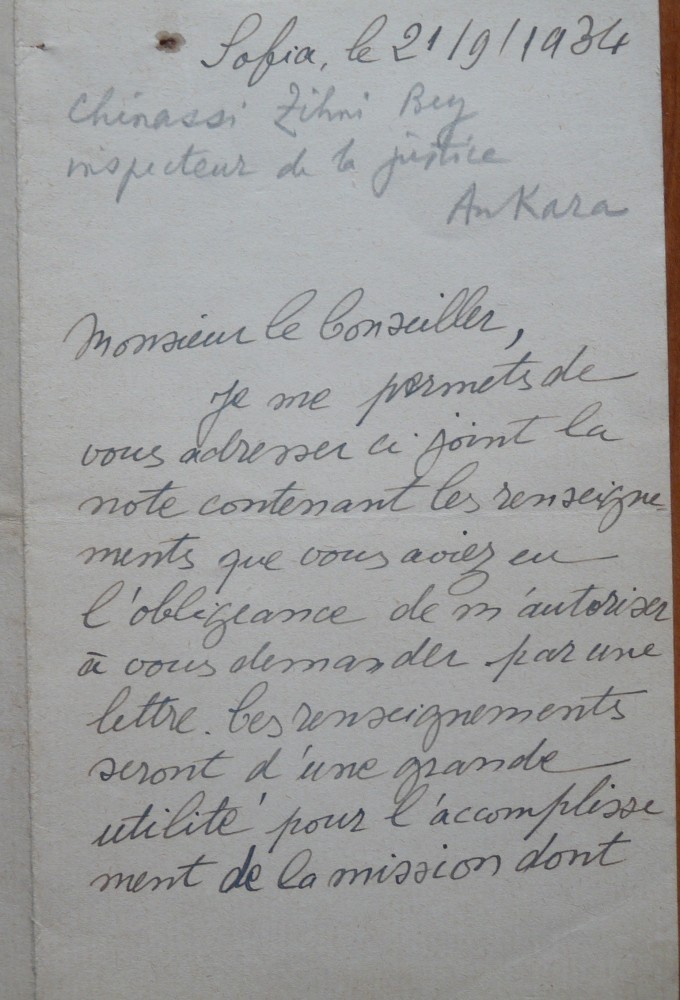 Sofia, le 21/9/1934
Chinassi Zihni Bey
inspecteur de la justice
Ankara
Monsieur le Conseiller,
Je me permets de
vous adresser ci-joint la
note contenant les renseigne-
ments que vous aviez eu
l'obligeance de m'autoriser
à vous demander par une
lettre. Ces renseignements
seront d'une grande
utilité pour l'accomplisse
ment de la mission dont